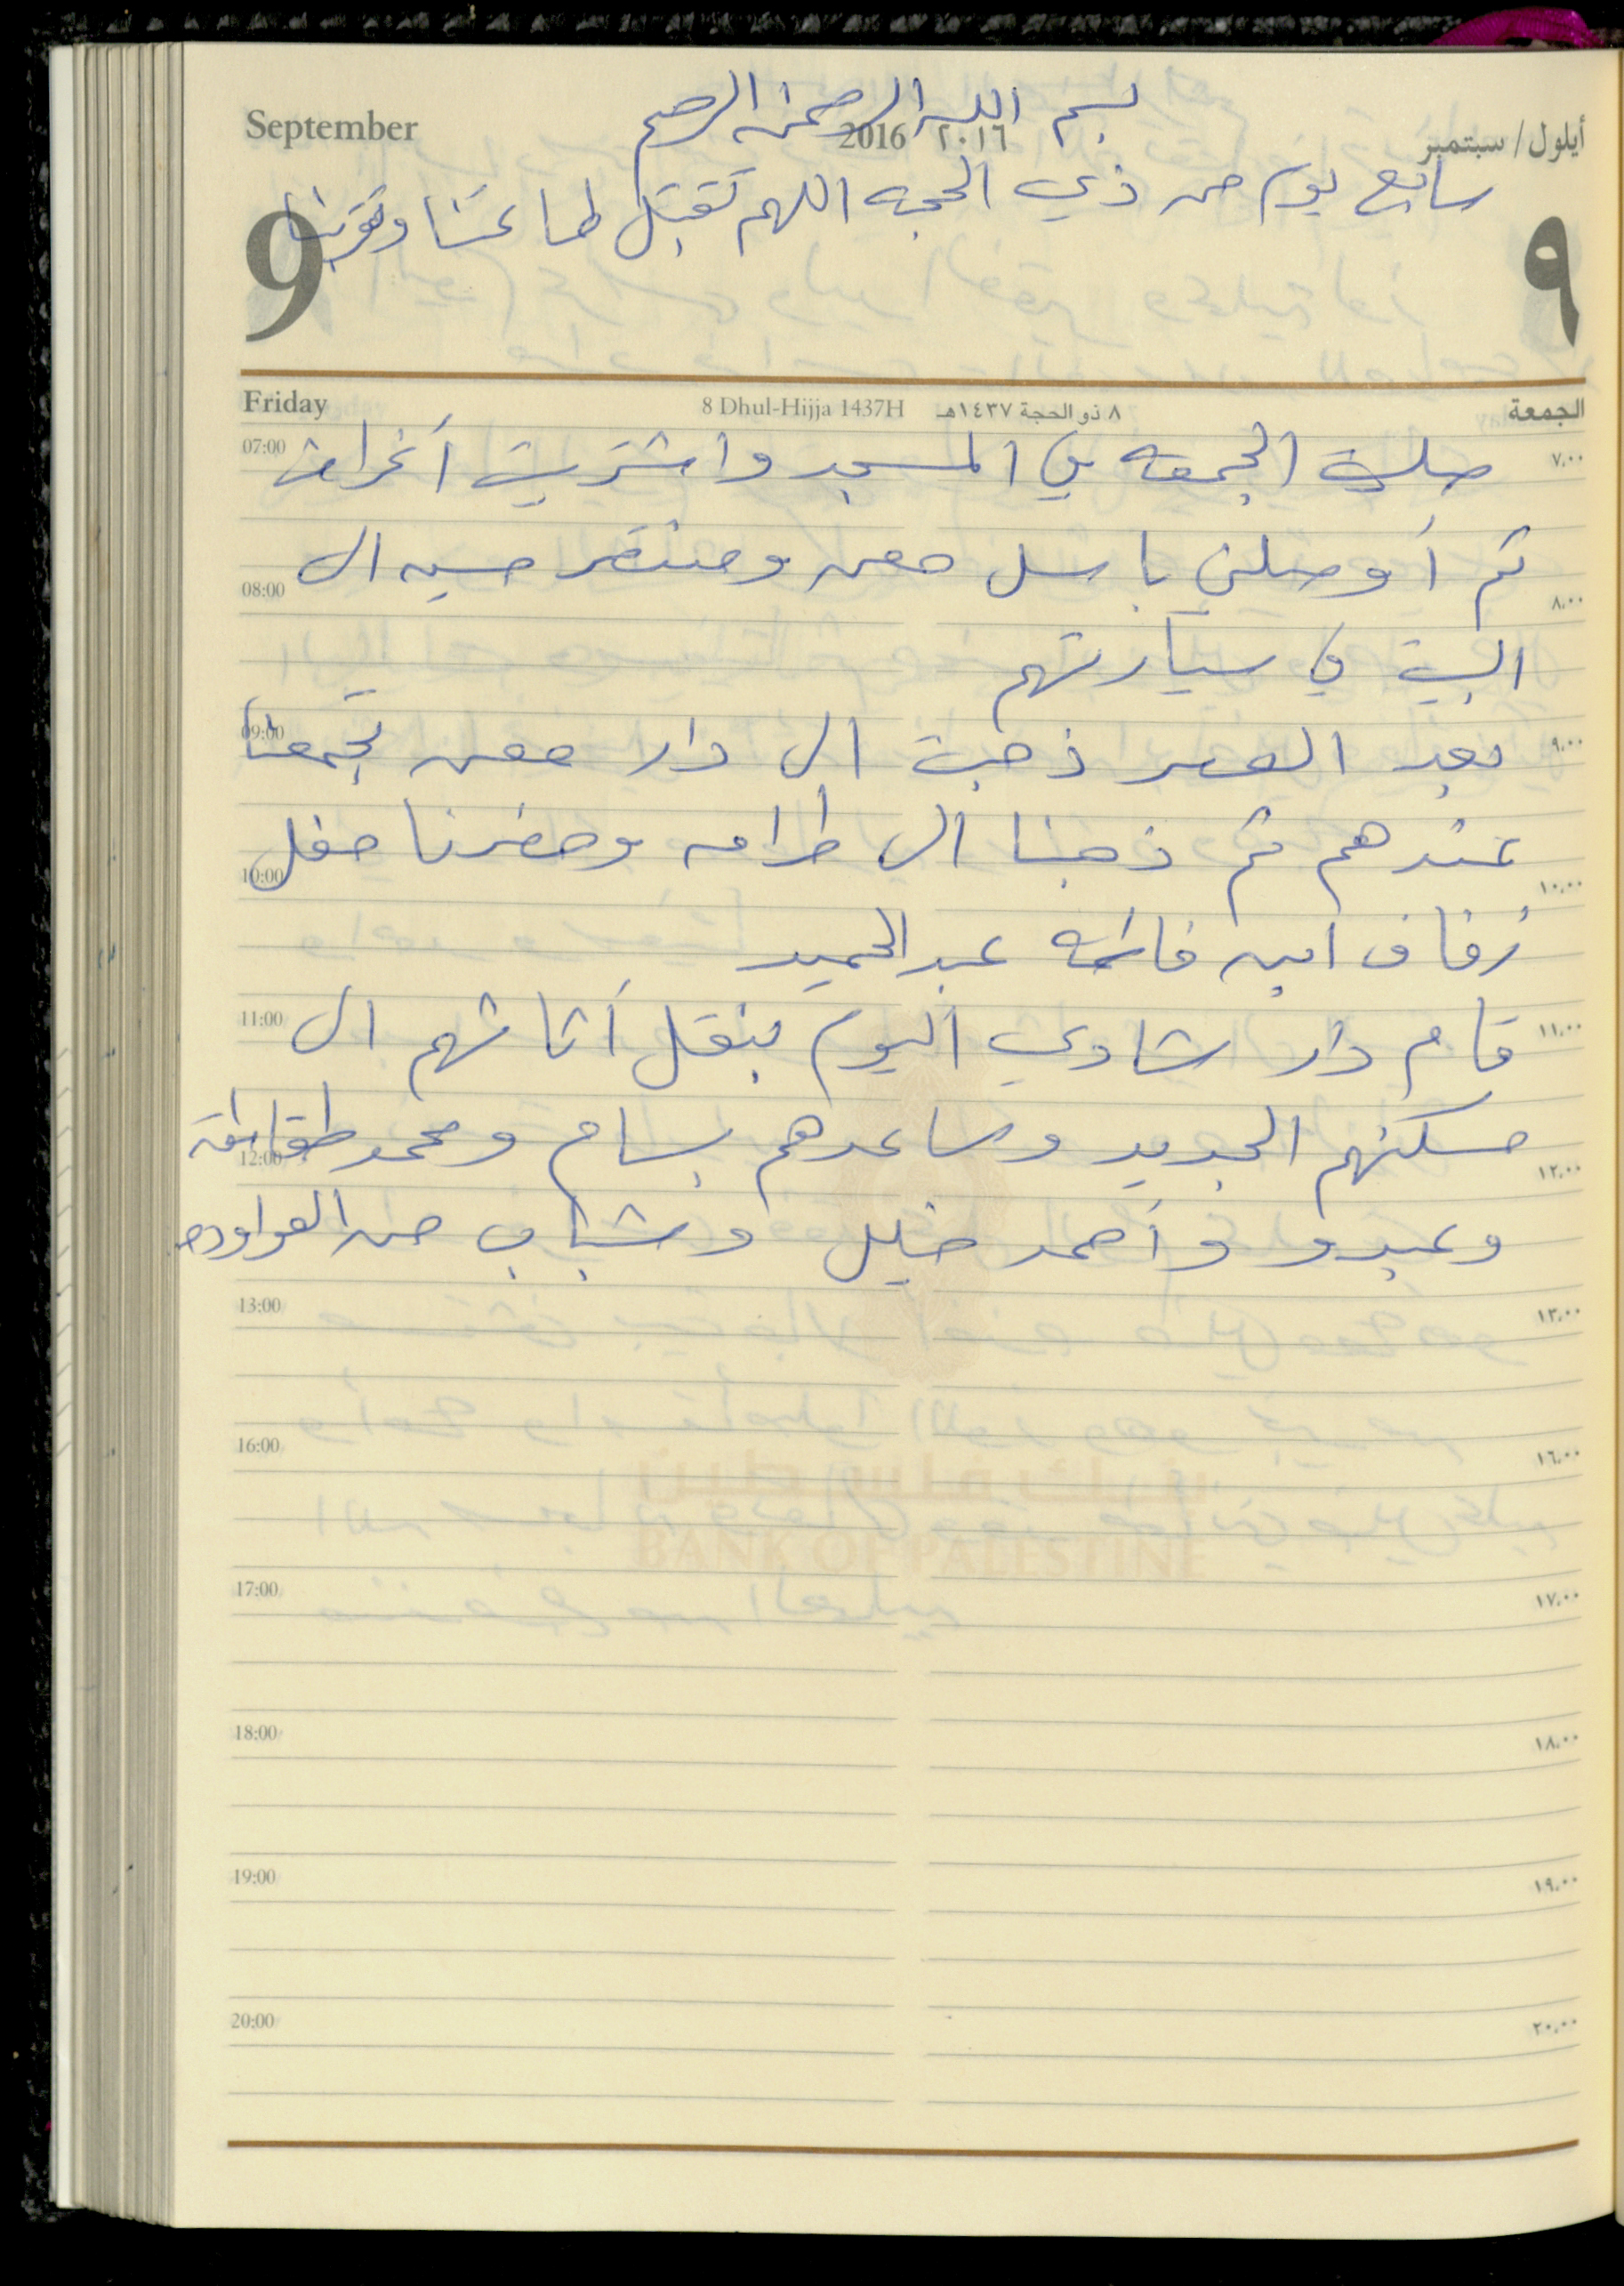 بسم الله الرحمن الرحيم
September 2016 ٢٠١٦ أيلول/سبتمبر
سابع يوم من ذي الحجه اللهم تقبل طاعتنا وتقربنا
9 ٩
Friday 8 Dhul-Hijja 1437H ٨ ذو الحجة ١٤٣٧هـ الجمعة
07:00 صليت الجمعه في المسجد واشتريت أغراض ٧،٠٠
ثم أوصلني باسل معن ومنتصر حسين الى
08:00 ٨،٠٠
البيت في سيارتهم
09:00 بعد العصر ذهبت الى دار معن تجمعنا ٩،٠٠
عندهم ثم ذهبنا الى طرامه وحضرنا حفل
10:00 ١٠،٠٠
زفاف ابن فاطمه عبد الحميد
11:00 قام دار شادي اليوم بنقل أثاثهم الى ١١،٠٠
مسكنهم الجديد وساعدهم بسام ومحمد طقاطقه
12:00 ١٢،٠٠
وعبدو وأحمد خليل وشباب من العواوده
13:00 ١٣،٠٠
16:00 ١٦،٠٠
بنك فلسطين
BANK OF PALESTINE
17:00 ١٧،٠٠
18:00 ١٨،٠٠
19:00 ١٩،٠٠
20:00 ٢٠،٠٠